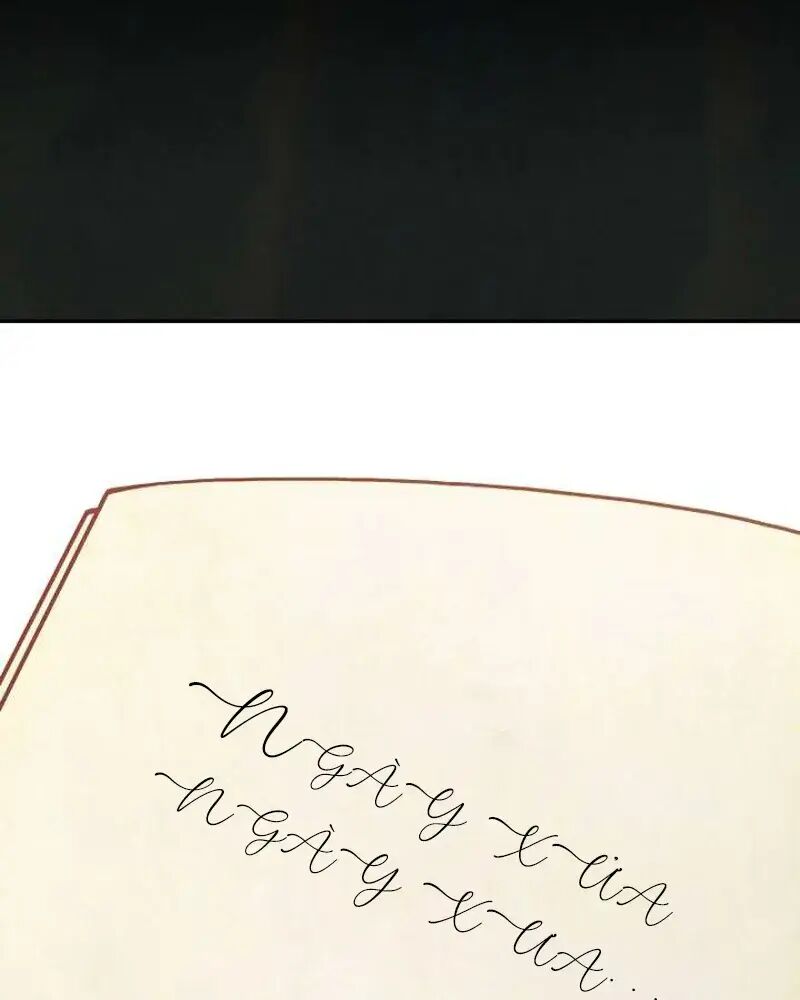 NGÀY XƯA
NGÀY XƯA...